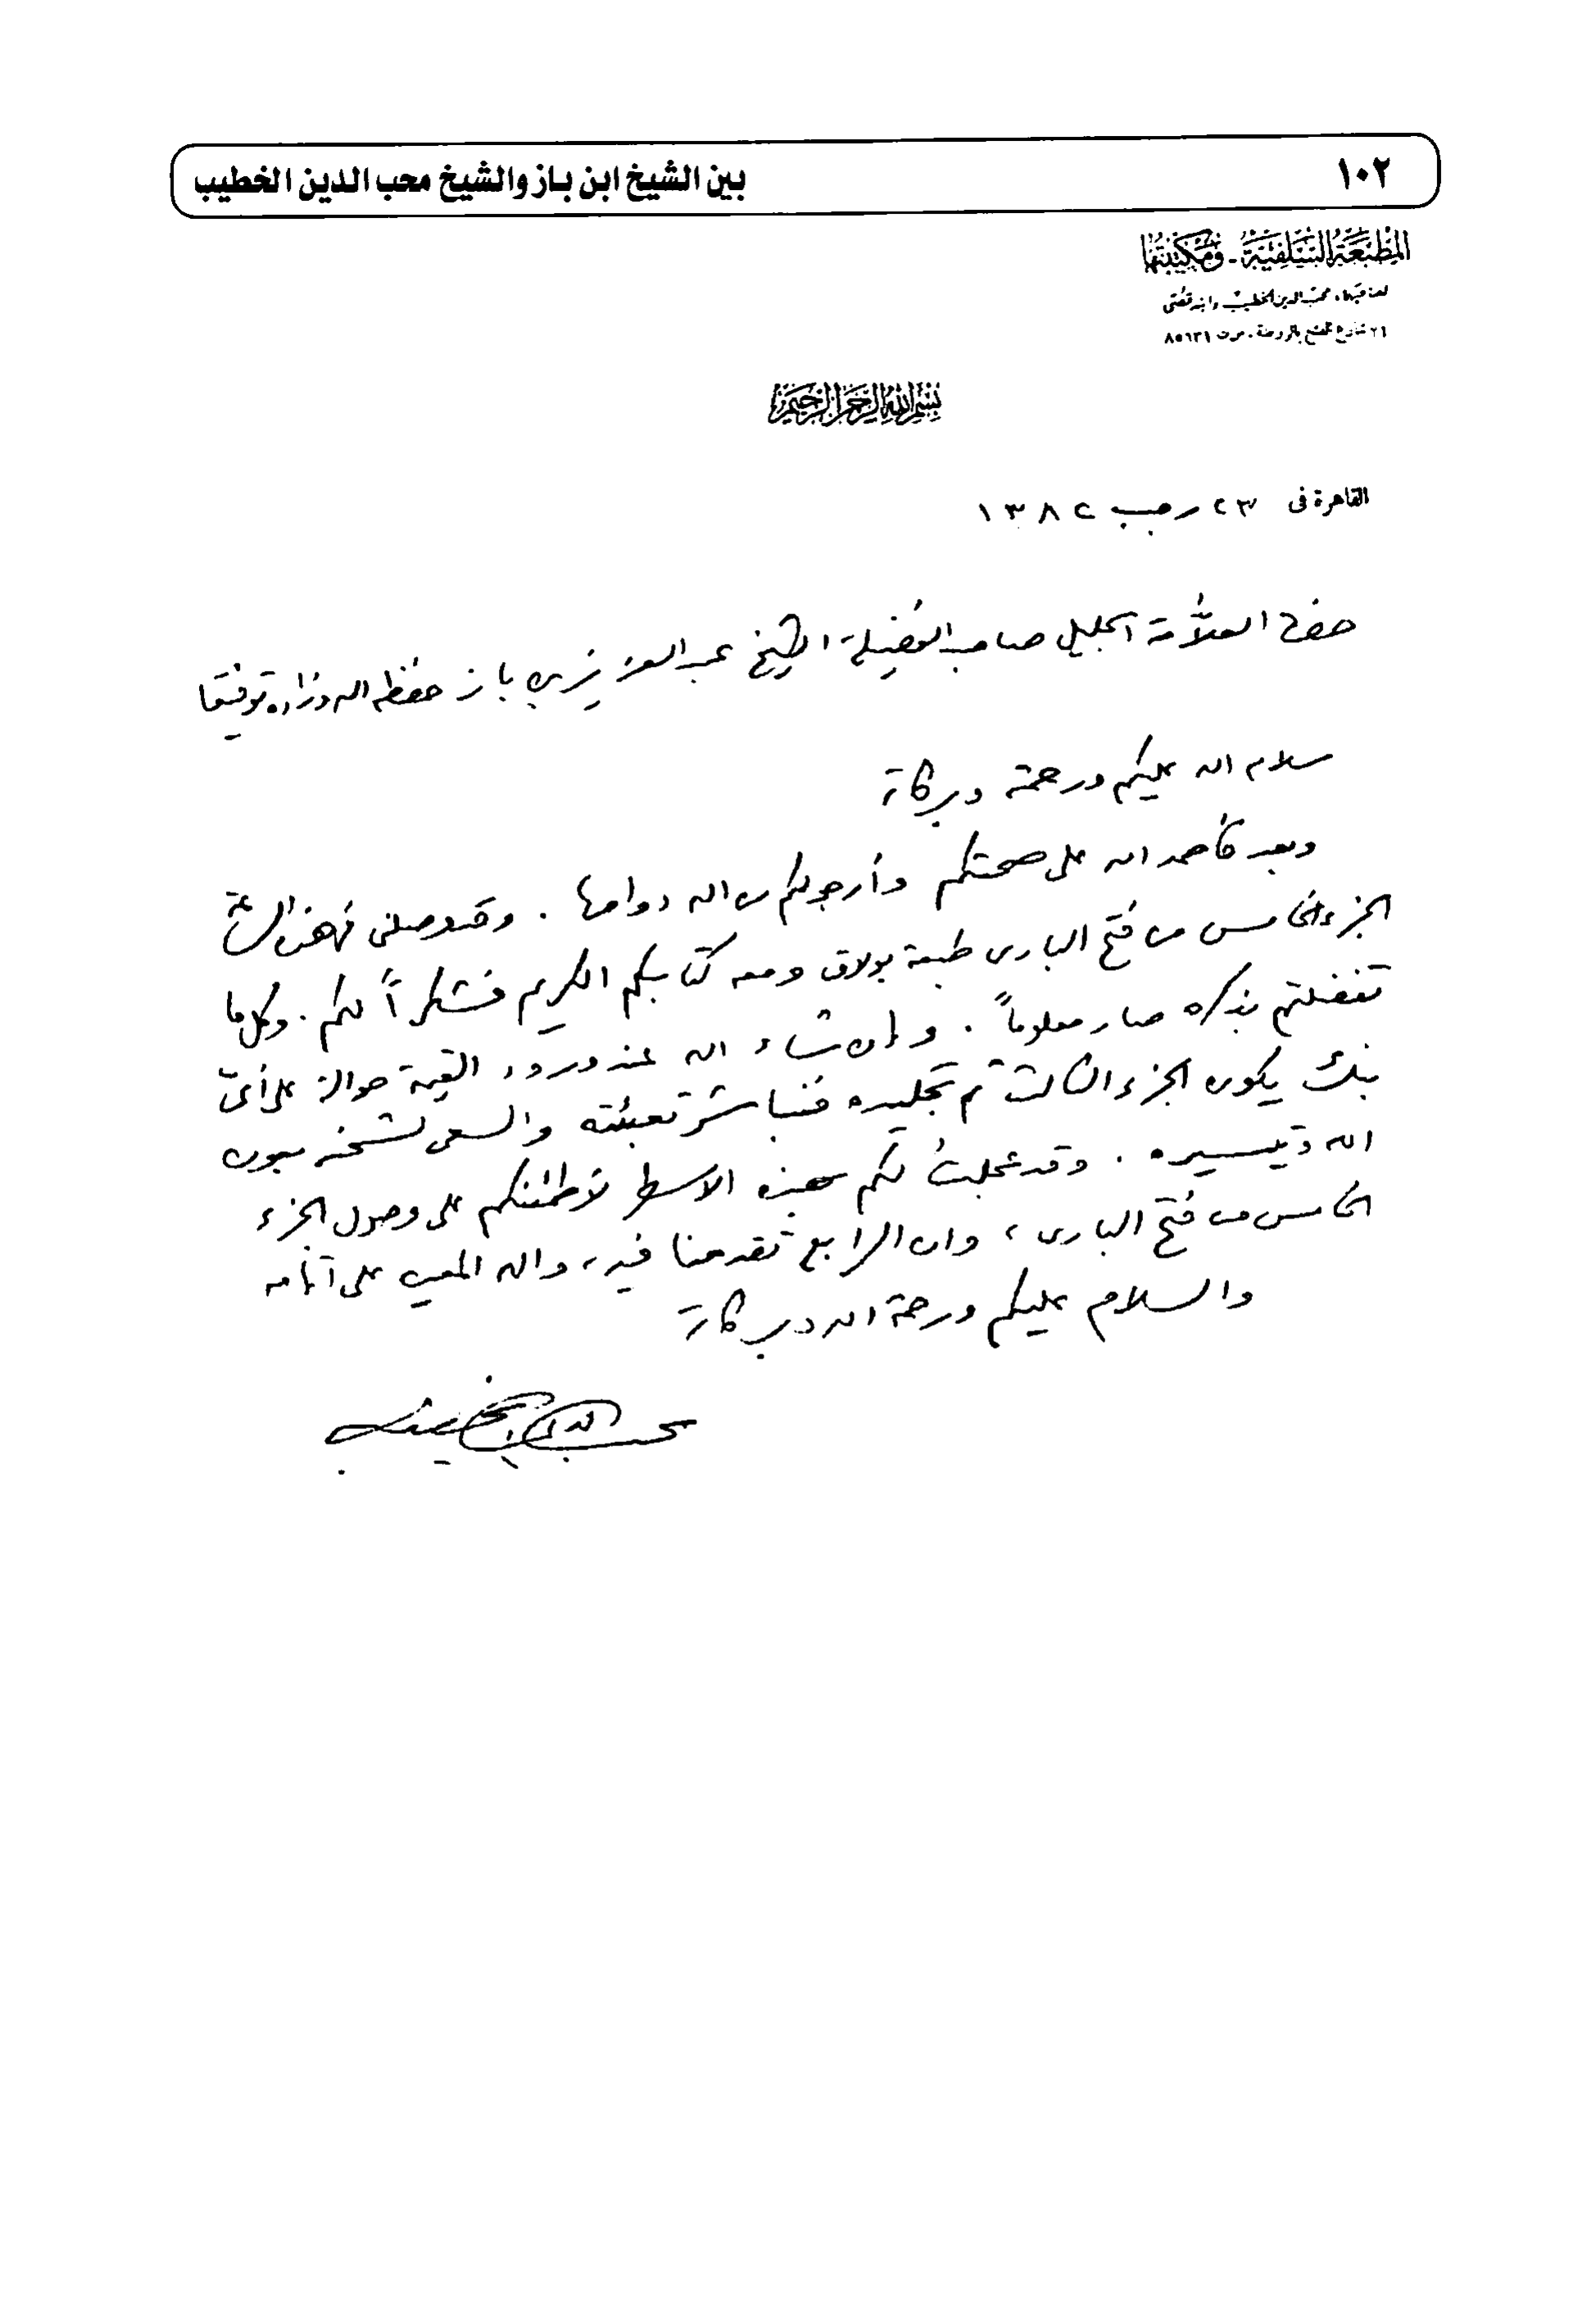 ١٠٢
بين الشيخ ابن باز والشيخ محب الدين الخطيب
المطبعة السلفية - ومكتبتها
لصاحبها: محب الدين الخطيب وابنه قصي
٢١ شارع الفتح بالروضة. ت ٨٥٦٣١
بسم الله الرحمن الرحيم
القاهرة فى ٢٣ رجب ١٣٨٢
حضرة العلّامة الجليل صاحب الفضيلة الشيخ عبد العزيز بن باز حفظه الله وزاده توفيقا
سلام الله عليكم ورحمته وبركاته
وبعد فأحمد الله على صحتكم وأرجو لكم من الله دوامها . وقد وصلنى في هذه الساعة
الجزء الخامس من فتح البارى طبعة بولاق ومعه كتابكم الكريم فشكراً لكم . وكل ما
تفضلتم بذكره صار معلوماً . وإن شاء الله عند ورود القيمة حوالة على أىّ
بنك يكون الجزء الثالث تم تجليده فنباشر تعبئته والسعى لشحنه بعون
الله وتيسيره . وقد عجلتُ لكم بهذه الاسطر لأطمئنكم على وصول الجزء
الخامس من فتح البارى ، وان الرابع تقدمنا فيه ، والله المعين على اتمامه
والسلام عليكم ورحمة الله وبركاته
محب الدين الخطيب